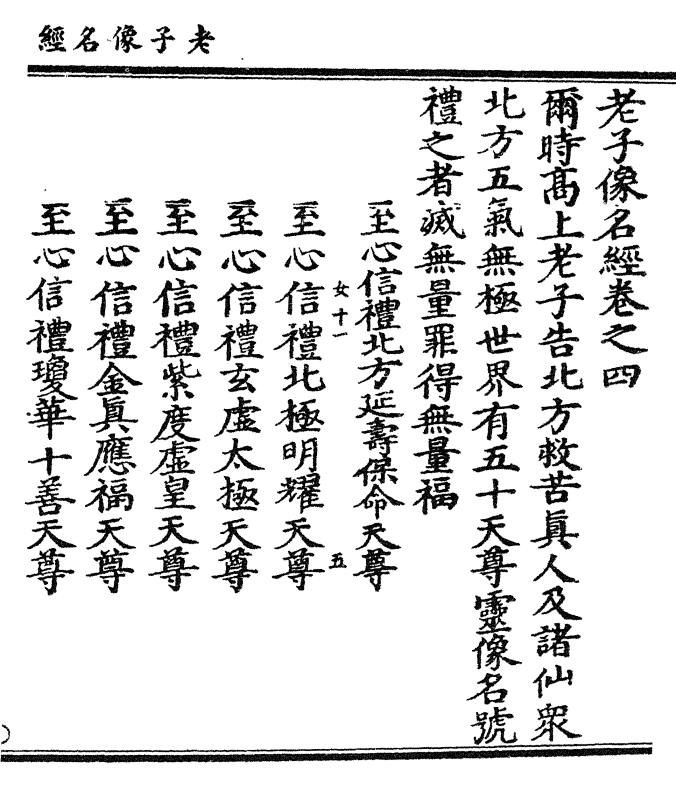 老子像名經
老子像名經卷之四
爾時高上老子告北方救苦真人及諸仙衆
北方五氣無極世界有五十天尊靈像名號
禮之者滅無量罪得無量福
至心信禮北方延壽保命天尊
女十一
五
至心信禮北極明耀天尊
至心信禮玄虛太極天尊
至心信禮紫度虛皇天尊
至心信禮金真應福天尊
至心信禮瓊華十善天尊